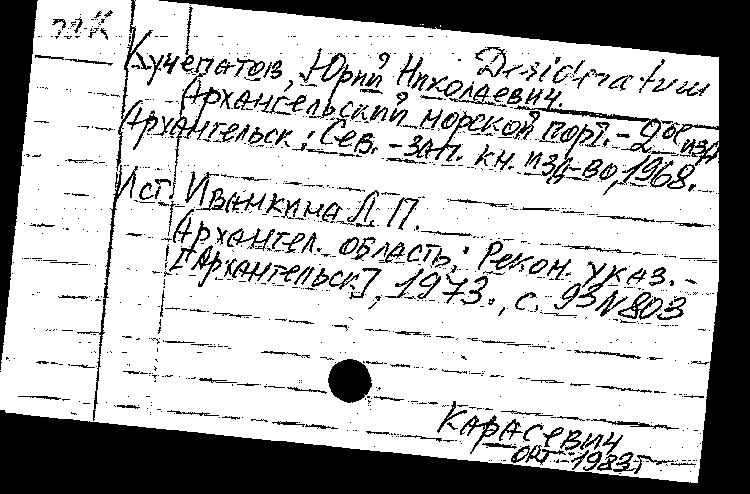 ПК
Desideratum
Кучепатов, Юрий Николаевич.
Архангельский морской порт. - 2ое изд.
Архангельск: Сев.-зап. кн. изд-во, 1968.
Ист. Иванкина Л. П.
Архангел. область: Рекон. указ. -
[Архангельск], 1973., с. 93 N 803
Карасевич
окт-1983г